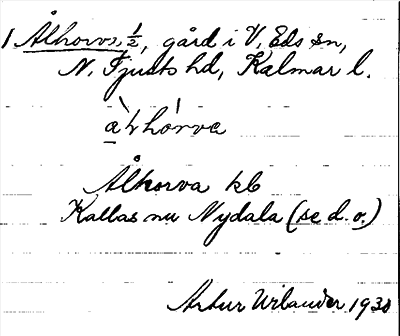 1 Ålhorva, 1/2, gård i V. Eds sn,
N. Tjusts hd, Kalmar l.
à̱lhórva
Ålhorva kb
Kallas nu Nydala (se d. o.)
Artur Urlander 1930